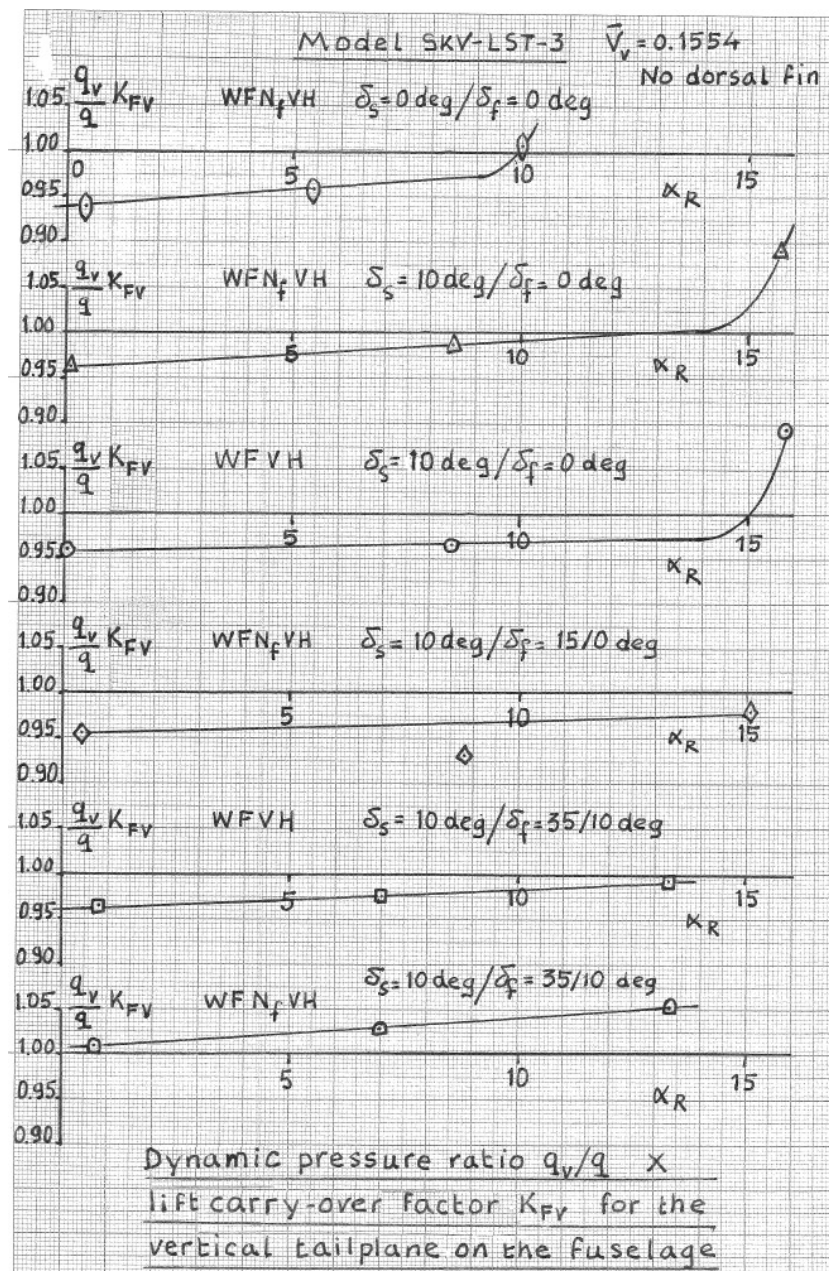 Model SKV-LST-3 V̄ᵥ = 0.1554
No dorsal fin
1.05 qᵥ/q K_FV WFN_fVH δₛ=0 deg/δ_f=0 deg
1.00
0 5 10 15
0.95 α_R
0.90
1.05 qᵥ/q K_FV WFN_fVH δₛ=10 deg/δ_f=0 deg
1.00
5 10 15
0.95 α_R
0.90
1.05 qᵥ/q K_FV WFVH δₛ=10 deg/δ_f=0 deg
1.00
5 10 15
0.95 α_R
0.90
1.05 qᵥ/q K_FV WFN_fVH δₛ=10 deg/δ_f=15/0 deg
1.00
5 10 15
0.95 α_R
0.90
1.05 qᵥ/q K_FV WFVH δₛ=10 deg/δ_f=35/10 deg
1.00
5 10 15
0.95 α_R
0.90
1.05 qᵥ/q K_FV WFN_fVH δₛ=10 deg/δ_f=35/10 deg
1.00
5 10 15
0.95 α_R
0.90
Dynamic pressure ratio qᵥ/q X
lift carry-over factor K_FV for the
vertical tailplane on the fuselage